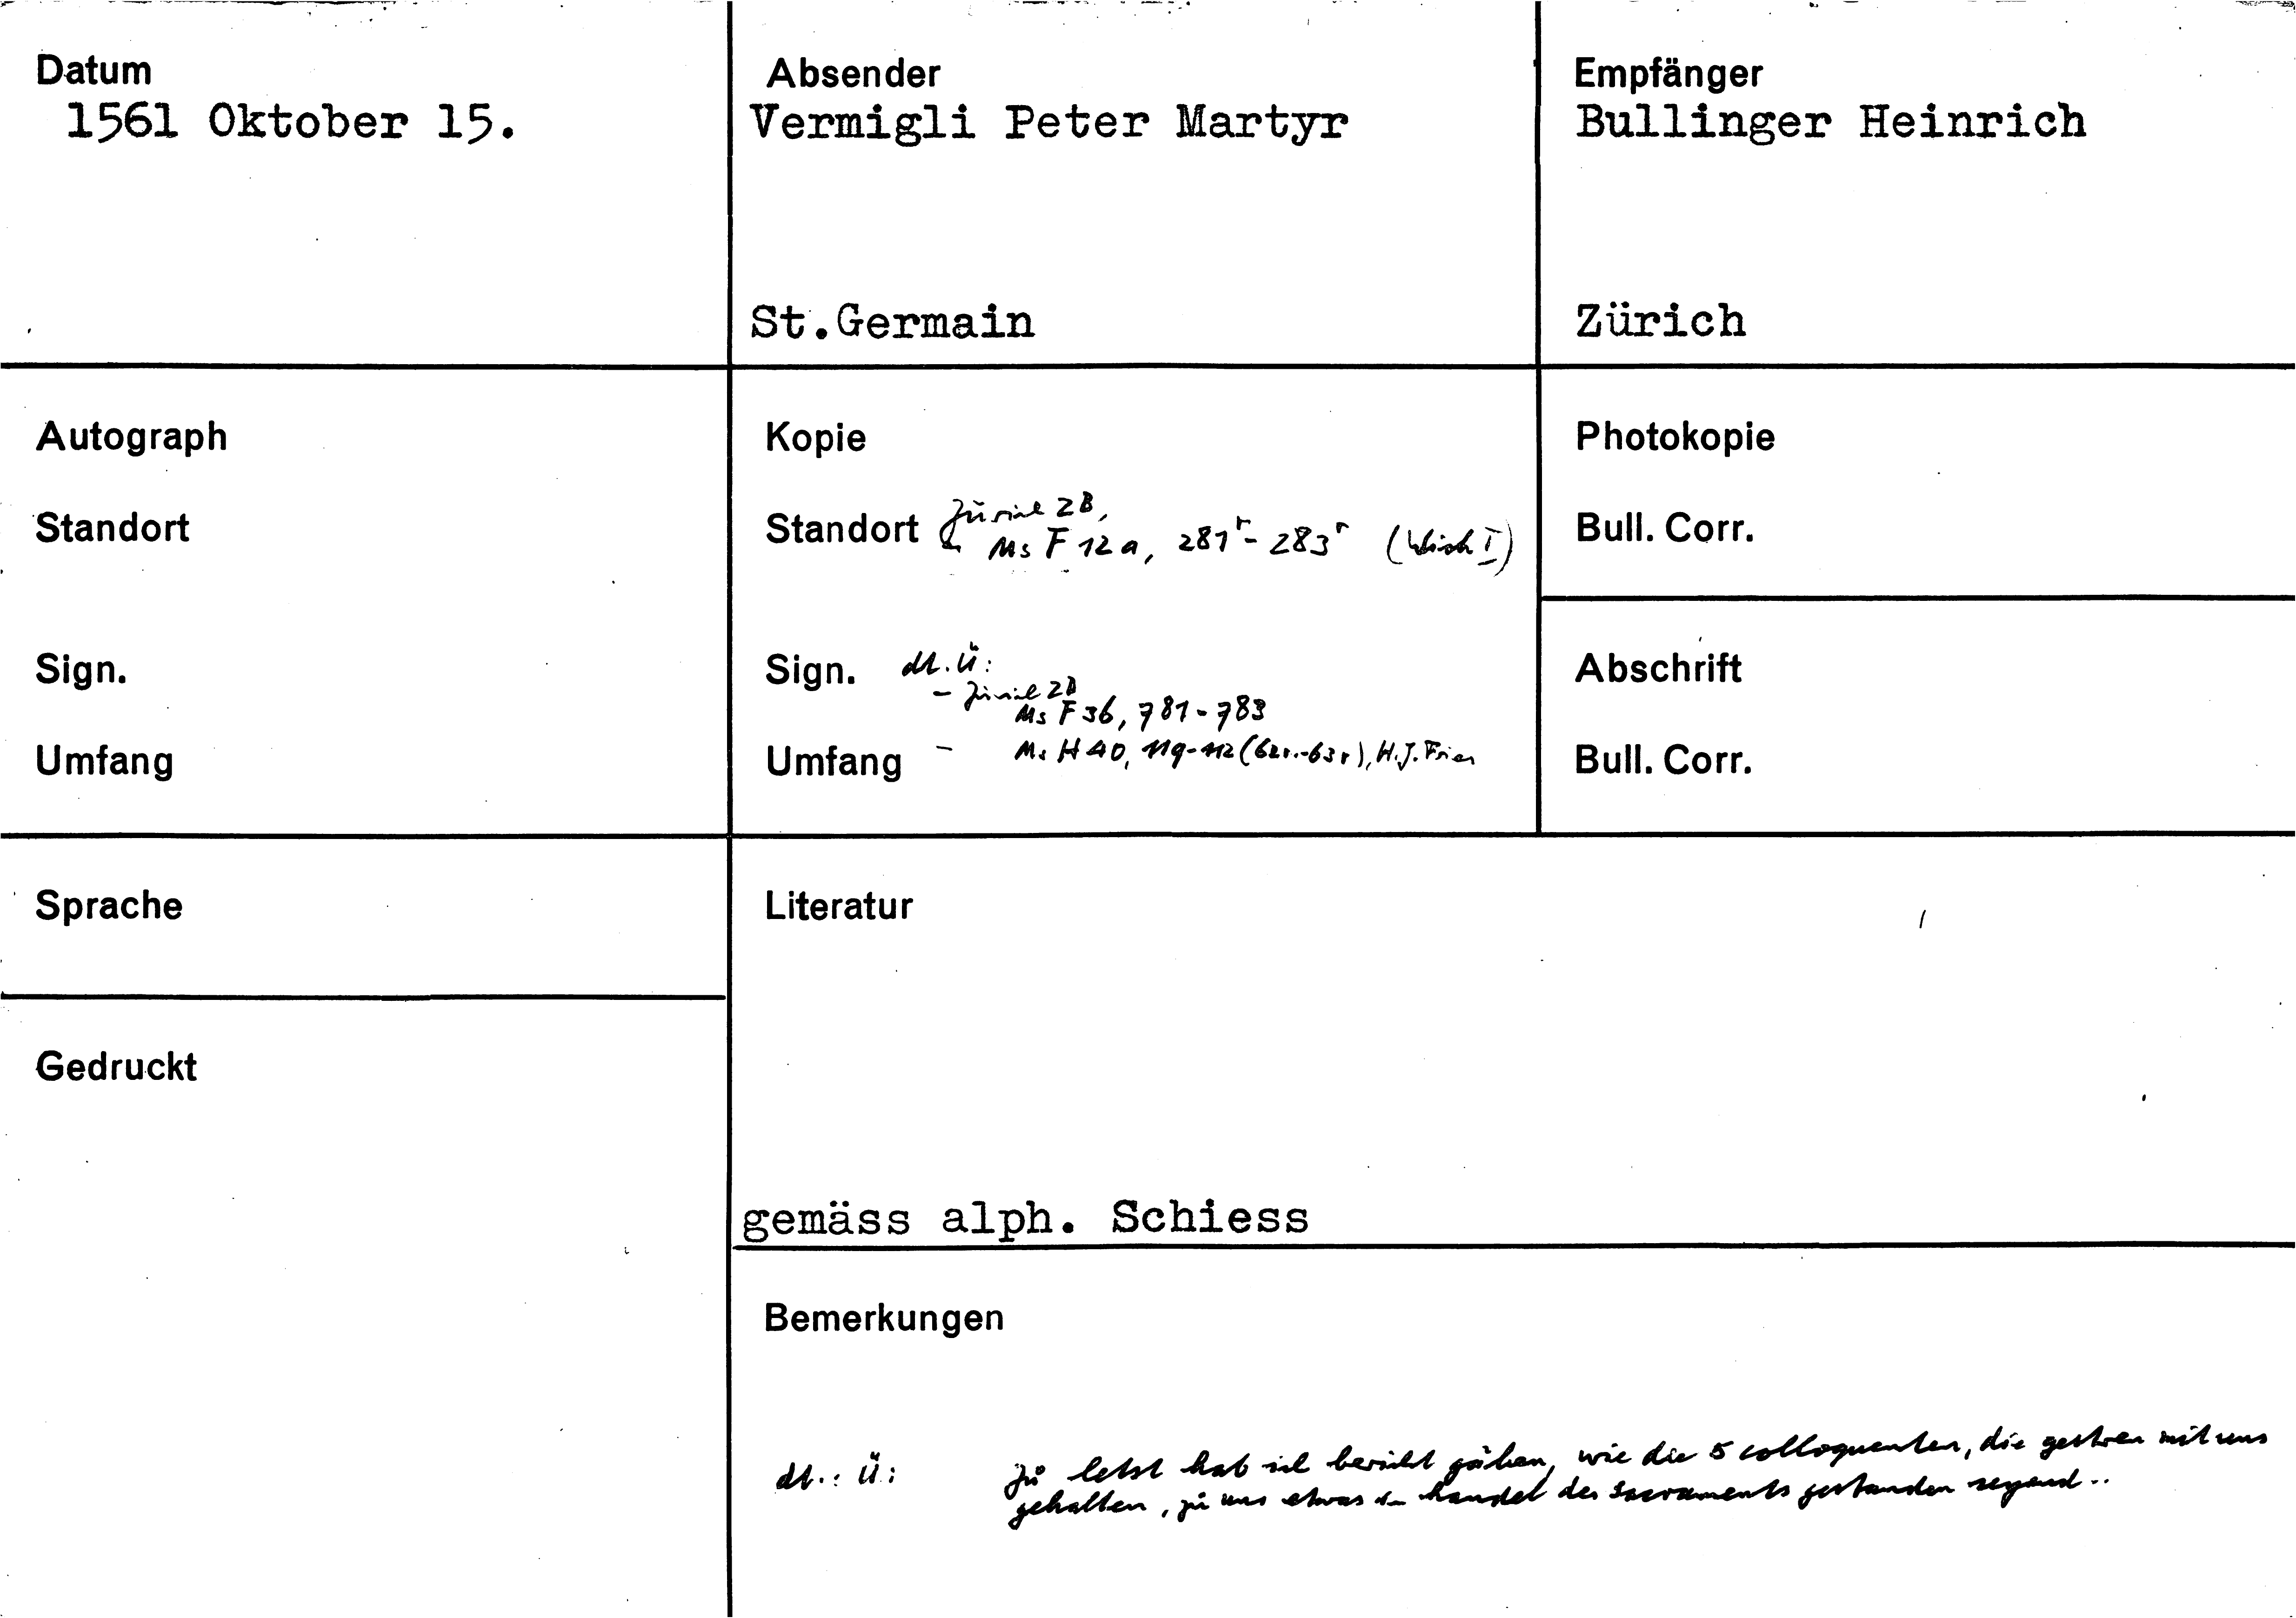 Datum
1561 Oktober 15.
Absender
Vermigli Peter Martyr
St.Germain
Empfänger
Bullinger Heinrich
Zürich
Autograph
Standort
Sign.
Umfang
Kopie
Standort Zürich ZB,
Ms F 12a, 281r - 283r
Sign. dt. Ü:
- Zürich ZB
Ms F 36, 781-783
Umfang - Ms H 40, (62v.-63r), H.J. Fries
Photokopie
Bull. Corr.
Abschrift
Bull. Corr.
Sprache
Gedruckt
Literatur
gemäss alph. Schiess
Bemerkungen
dt.: Ü: Zů letst hab ich bericht gäben, wie die 5 colloquenten, die gestren mit uns
gehalten, zů uns etwas im handel des sacraments gestanden seyend..